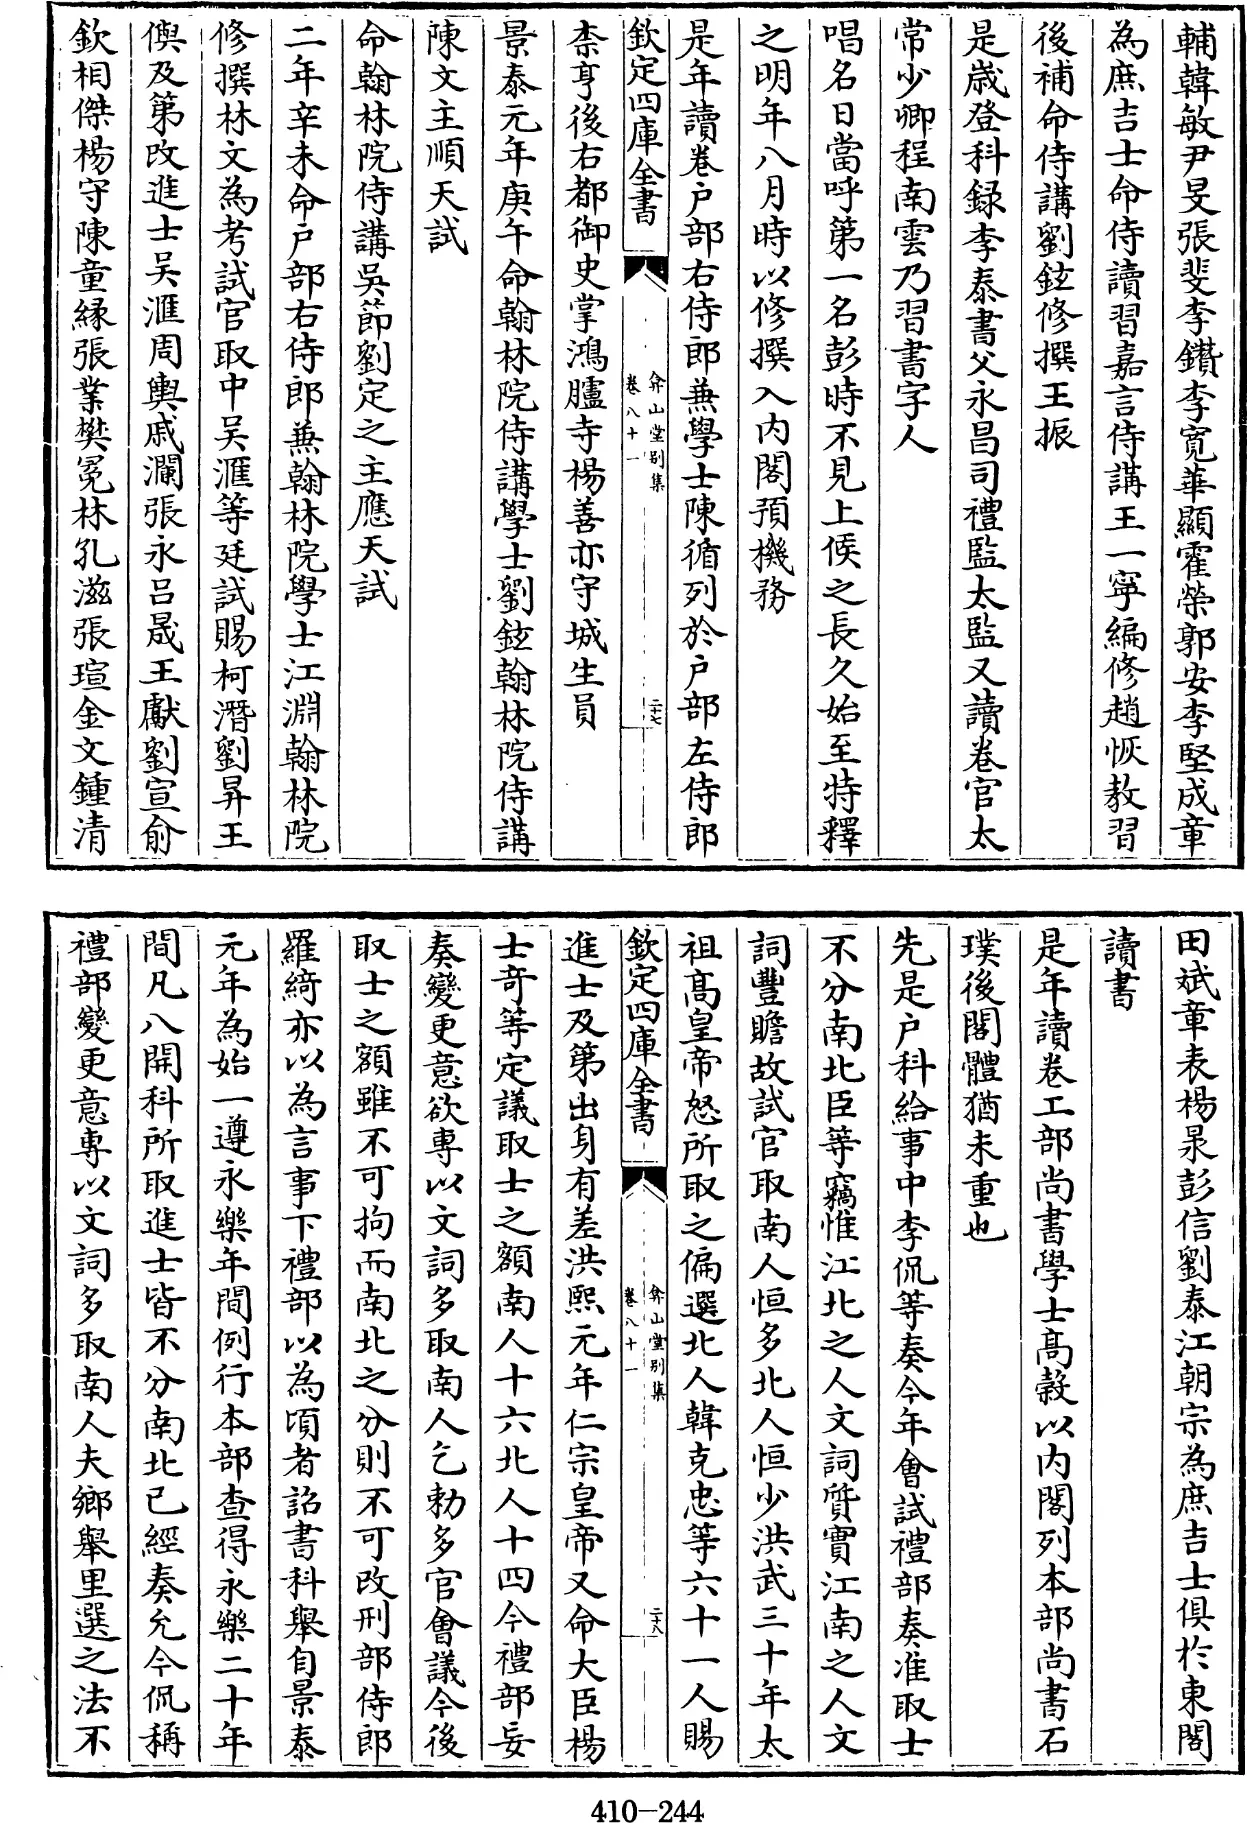 輔韓敏尹旻張斐李鑽李寛華顯霍榮郭安李堅成章
為庶吉士命侍讀習嘉言侍講王一寧編修趙恢教習
後補命侍講劉鉉修撰王振
是歲登科録李泰書父永昌司禮監太監又讀卷官太
常少卿程南雲乃習書字人
唱名日當呼第一名彭時不見上候之長久始至特釋
之明年八月時以修撰入内閣預機務
是年讀卷户部右侍郎兼學士陳循列於户部左侍郎
欽定四庫全書
弇山堂别集
卷八十一
二十七
柰亨後右都御史掌鴻臚寺楊善亦守城生員
景泰元年庚午命翰林院侍講學士劉鉉翰林院侍講
陳文主順天試
命翰林院侍講吳節劉定之主應天試
二年辛未命户部右侍郎兼翰林院學士江淵翰林院
修撰林文為考試官取中吴滙等廷試賜柯潛劉昇王
㒜及第改進士吴滙周輿戚瀾張永吕晟王獻劉宣俞
欽相傑楊守陳童縁張業樊冕林孔滋張瑄金文鍾清
田斌章表楊㫤彭信劉泰江朝宗為庶吉士俱於東閣
讀書
是年讀卷工部尚書學士高穀以内閣列本部尚書石
璞後閣體猶未重也
先是户科給事中李侃等奏今年會試禮部奏准取士
不分南北臣等竊惟江北之人文詞質實江南之人文
詞豐贍故試官取南人恒多北人恒少洪武三十年太
祖高皇帝怒所取之偏選北人韓克忠等六十一人賜
欽定四庫全書
弇山堂别集
卷八十一
二十八
進士及第出身有差洪熙元年仁宗皇帝又命大臣楊
士奇等定議取士之額南人十六北人十四今禮部妄
奏變更意欲專以文詞多取南人乞勅多官會議今後
取士之額雖不可拘而南北之分則不可改刑部侍郎
羅綺亦以為言事下禮部以為頃者詔書科舉自景泰
元年為始一遵永樂年間例行本部查得永樂二十年
間凡八開科所取進士皆不分南北已經奏允今侃稱
禮部變更意專以文詞多取南人夫鄉舉里選之法不
410-244